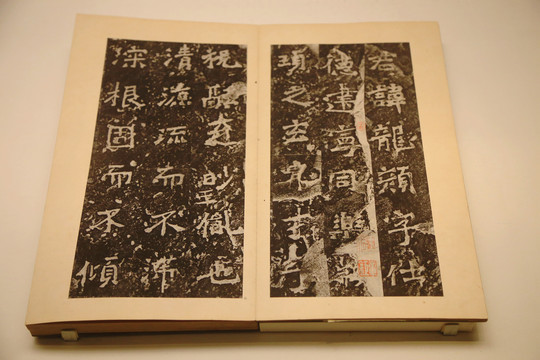 君諱龍顏字仕
德建寧同樂縣
頊之玄冑才子
祝融之眇胤也
清源流而不滯
深根固而不傾